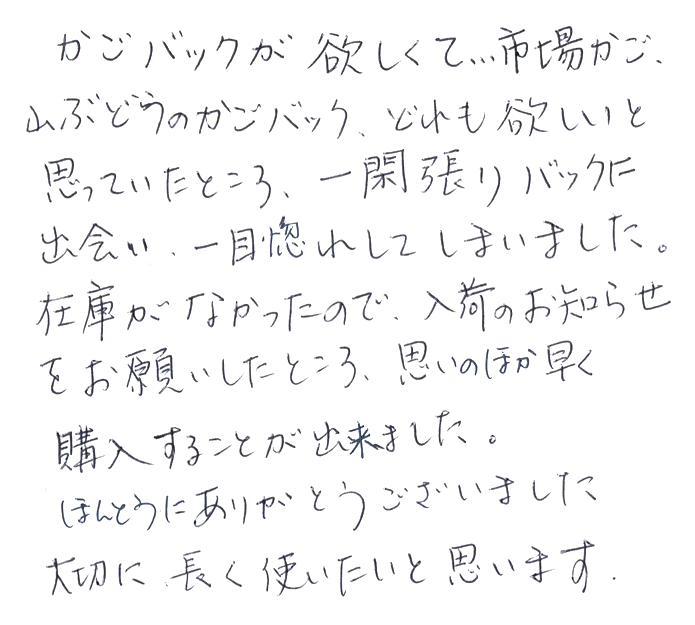 かごバックが欲しくて…市場かご、
山ぶどうのかごバック、どれも欲しいと
思っていたところ、一閑張りバックに
出会い、一目惚れしてしまいました。
在庫がなかったので、入荷のお知らせ
をお願いしたところ、思いのほか早く
購入することが出来ました。
ほんとうにありがとうございました
大切に長く使いたいと思います.